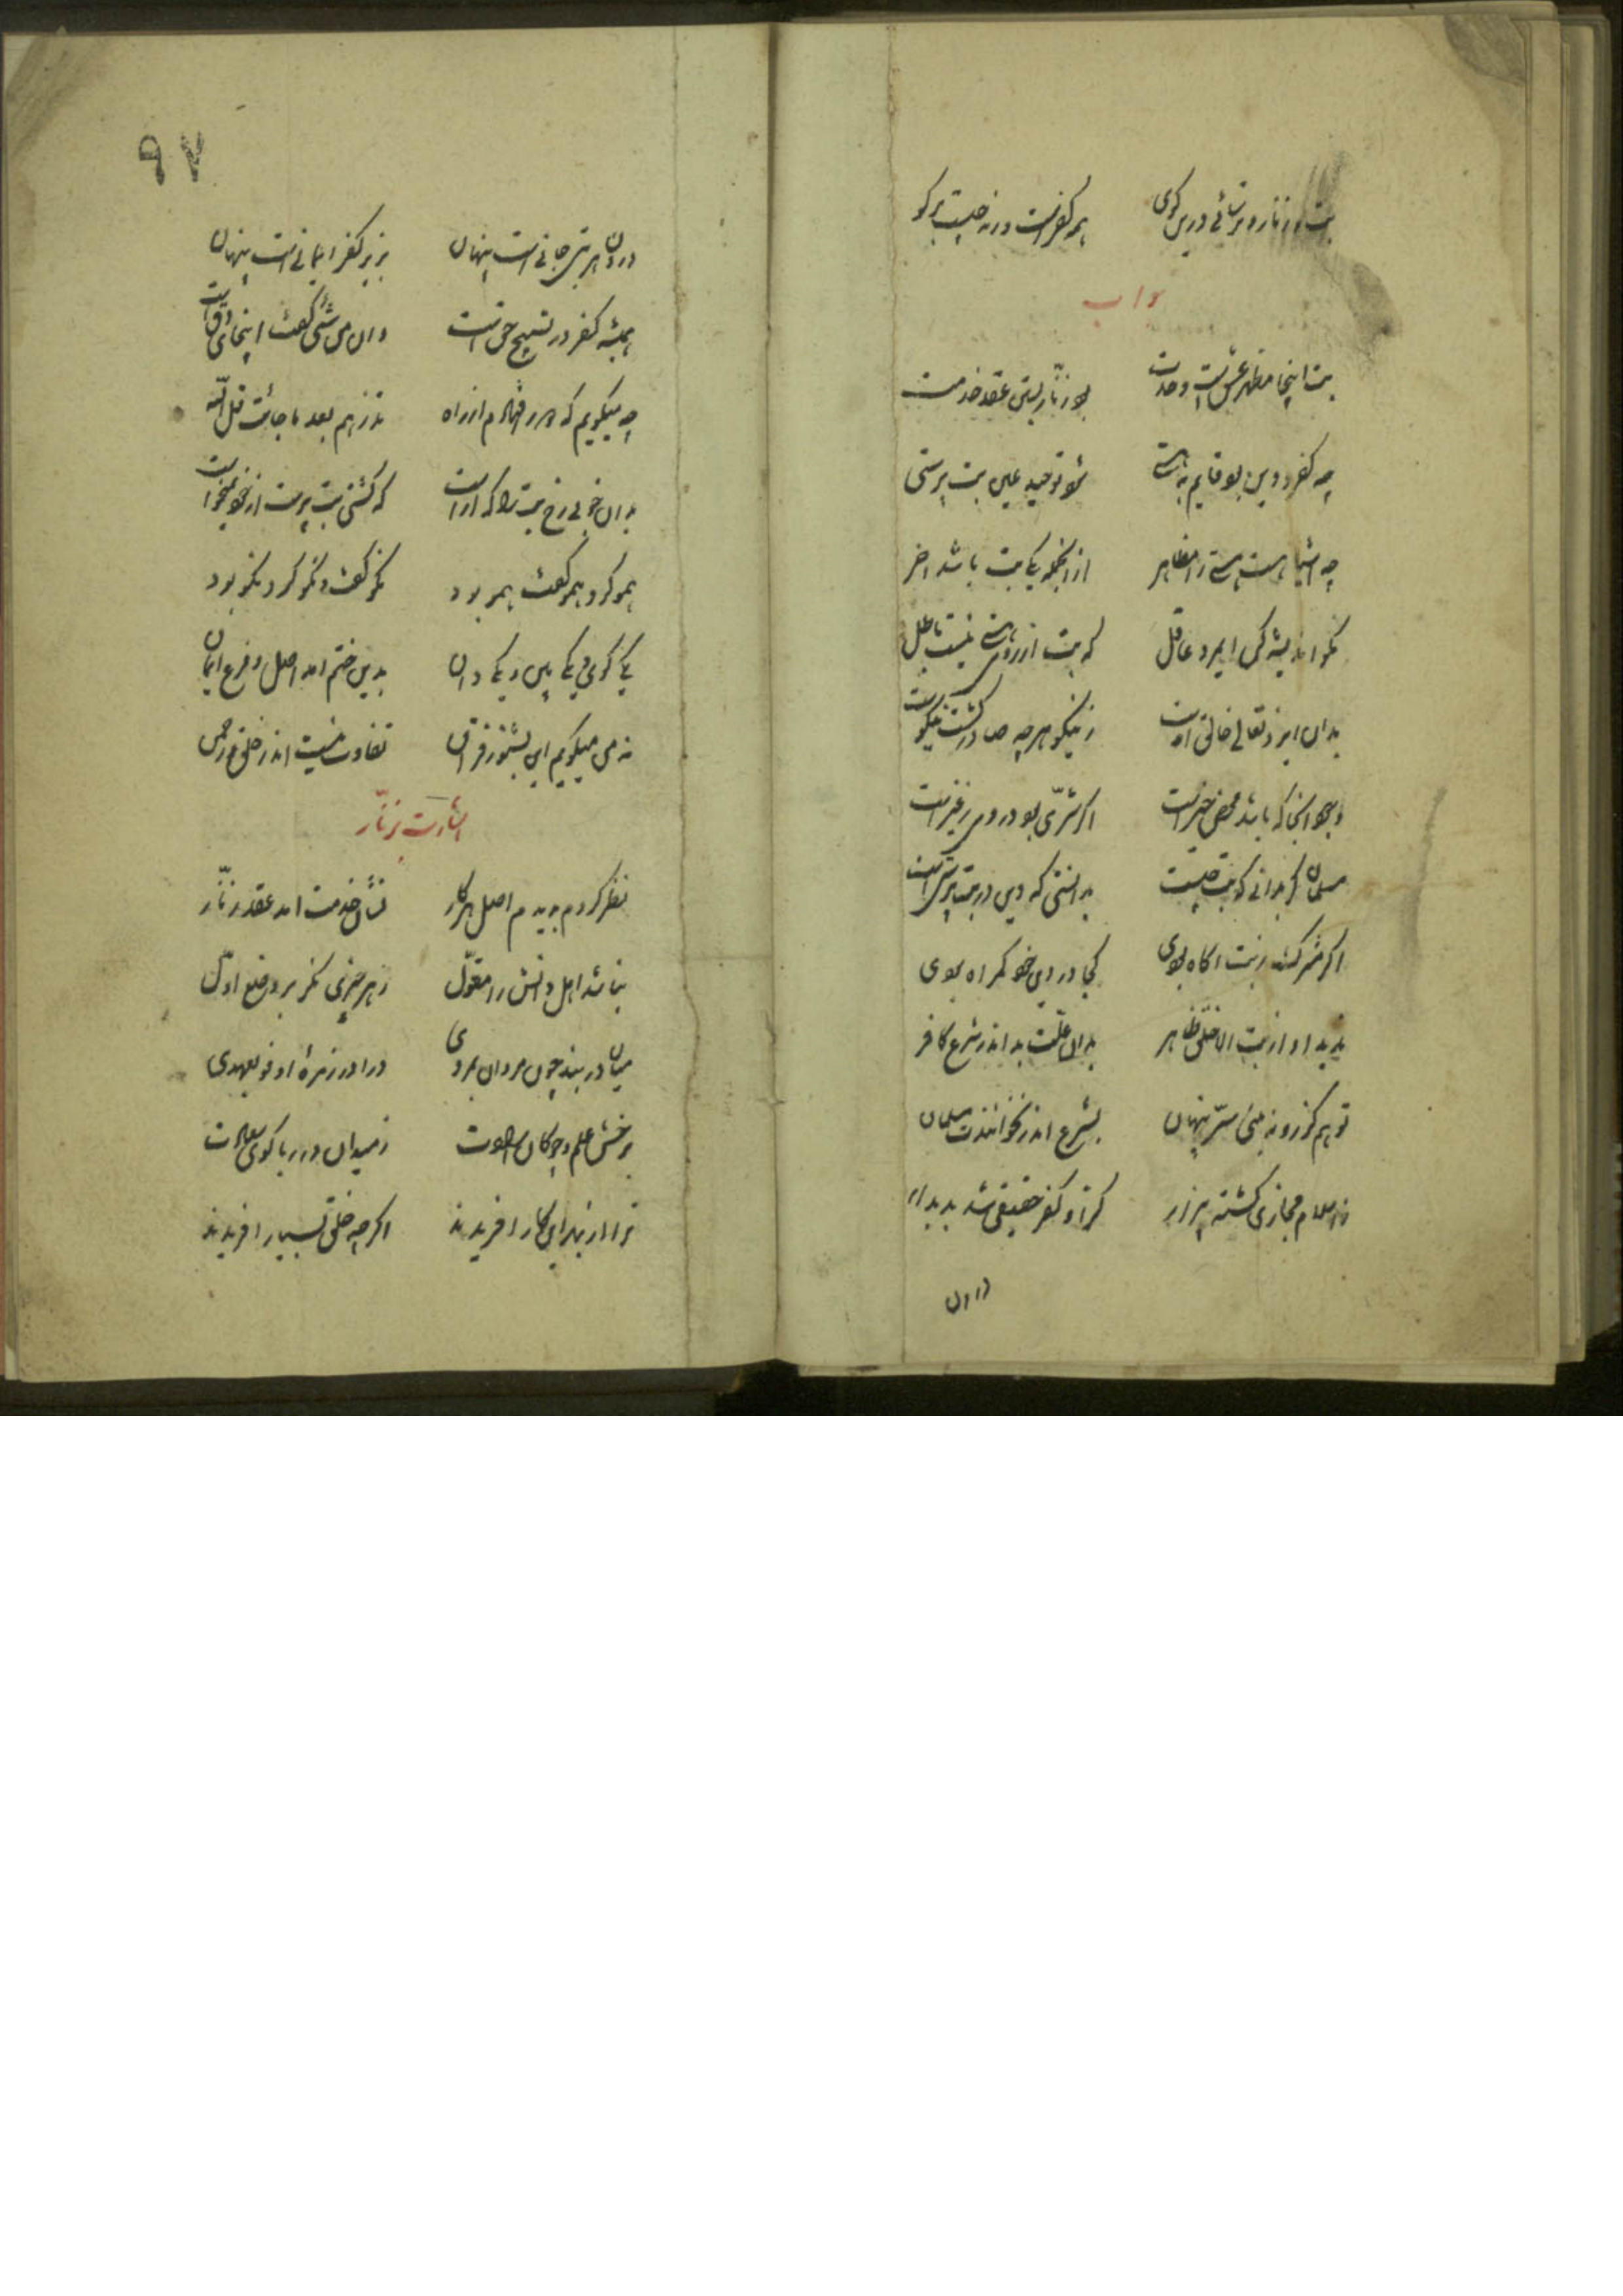 بت و زنار و ترسائی درین کوی همه کفرست ورنه چیست برکو
جواب
بت اینجا مظهر عشقست و وحدت بود زنّار بستن عقد خدمت
چه کفر و دین بود قایم بهستی شود توحید عین بت پرستی
چه اشیا هست هستی را مظاهر از انجمله یکی بت باشد اخر
نکو اندیشه کن ایمرد عاقل که بت از روی هستی نیست باطل
بدان ایزد تعالی خالق اوست ز نیکو هر چه صادر کشت نیکوست
وجود انجا که باشد محض خیرست اکر شرّی بود در وی ز غیرست
مسلمان کر بدانستی که بت چیست بدانستی که دین در بت پرستیست
اکر مشرک ز بت اکاه بودی کجا در دین خود کمراه بودی
ندید او از بت الا خلق ظاهر بدان علّت شد اندر شرع کافر
تو هم کر زو نه بینی سرّ پنهان بشرع اندر نخوانندت مسلمان
ز اسلام مجازی کشته بیزار کرا کفر حقیقی شد پدیدار
درون
۹۷
درون هر بتی جانیست پنهان بزیر کفر ایمانیست پنهان
همیشه کفر در تسبیح حق است وان من شئی کفت اینجا چه دق است
چه میکویم که دور افتادم از راه فذرهم بعد ما جائت قل اللّه
بدان خوبی رخ بت را که اراست که کشتی بت پرست ار حق نمیخواست
همو کرد و همو کفت و همو بود نکو کفت و نکو کرد و نکو بود
یکی کوی و یکی بین و یکی دان بدین ختم امد اصل و فرع ایمان
نه من میکویم این بشنو ز قران تفاوت نیست اندر خلق رحمن
اشارت بزنّار
نظر کردم بدیدم اصل هر کار نشان خدمت امد عقد زنّار
نباشد اهل دانش را معوّل ز هر چیزی مکر بر وضع اوّل
میان در بند چون مردان بمردی درا در زمرهٔ اوفو بعهدی
برخش علم و چوکان عبادت ز میدان در ربا کوی سعادت
ترا از بهر این کار افریدند اکرچه خلق بسیار افریدند